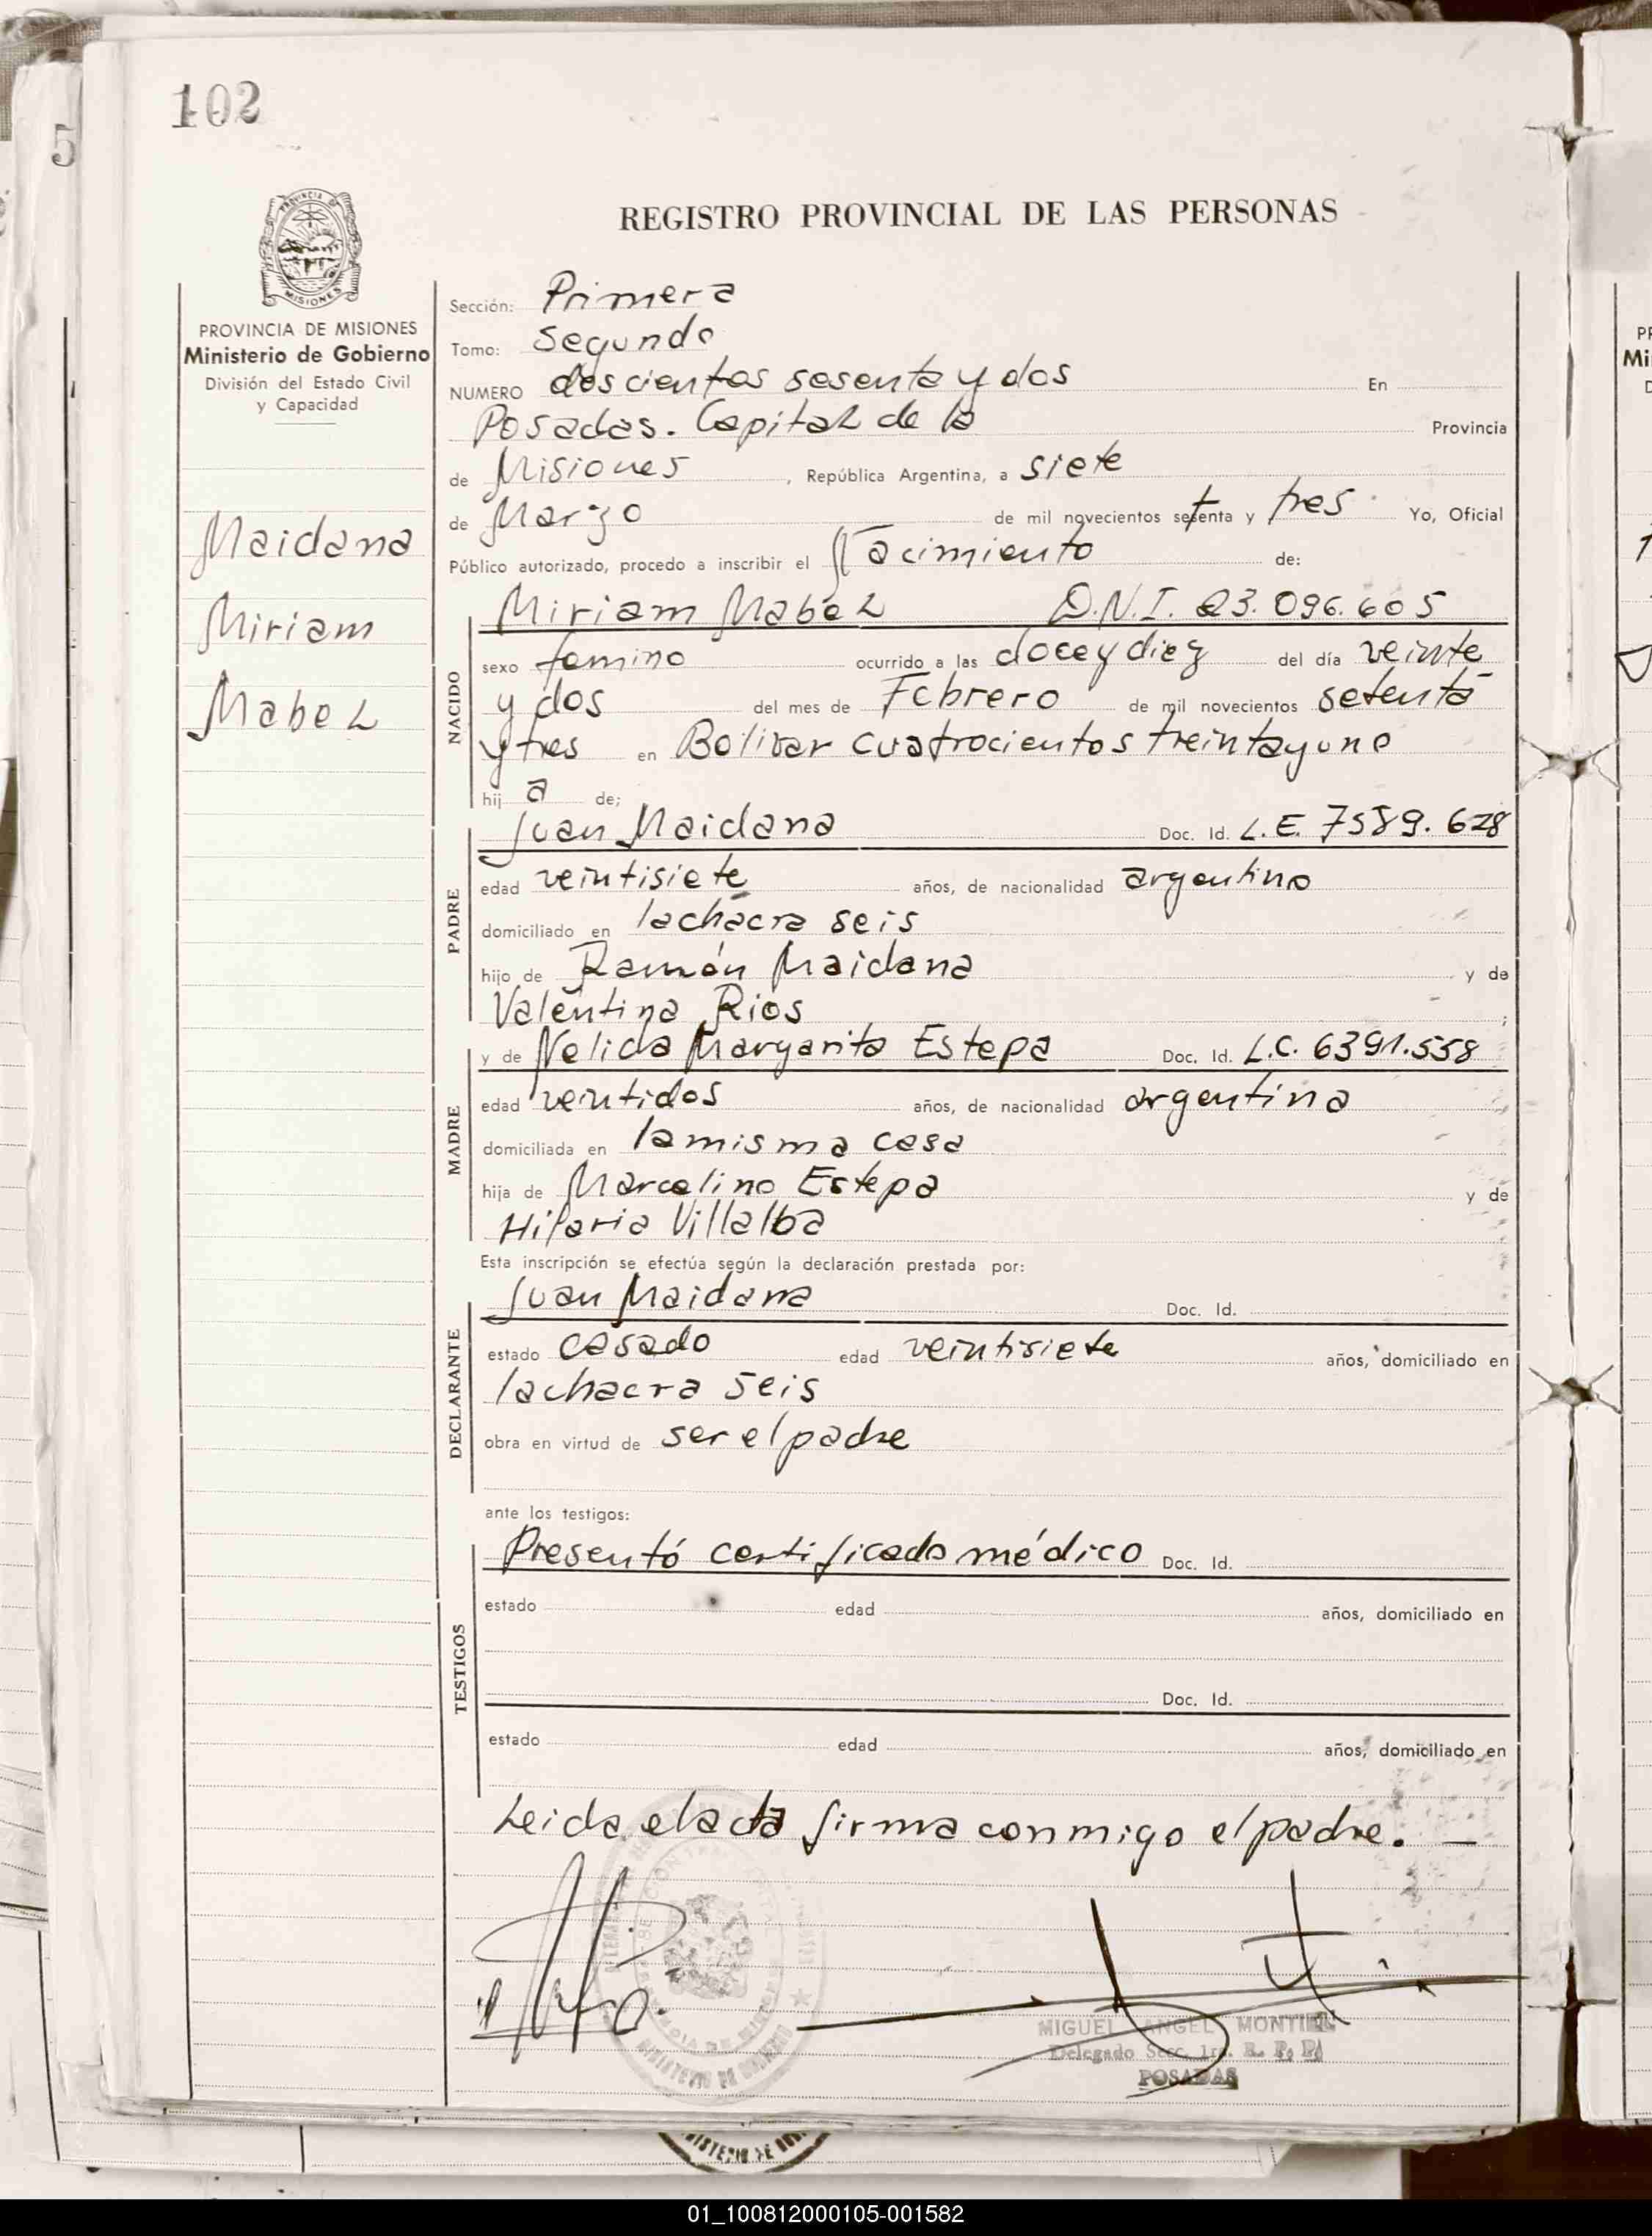 102
5
PROVINCIA DE
MISIONES
PROVINCIA DE MISIONES
Ministerio de Gobierno
División del Estado Civil
y Capacidad
Maidana
Miriam
Mabel
REGISTRO PROVINCIAL DE LAS PERSONAS
Sección: Primera
Tomo: Segundo
NUMERO doscientos sesenta y dos En
Posadas. Capital de la Provincia
de Misiones, República Argentina, a siete
de Marzo de mil novecientos setenta y tres Yo, Oficial
Público autorizado, procedo a inscribir el Nacimiento de:
Miriam Mabel D.N.I. 23.096.605
NACIDO
sexo femino ocurrido a las doce y diez del día veinte
y dos del mes de Febrero de mil novecientos setenta
y tres en Bolivar cuatrocientos treinta y uno
hij a de;
PADRE
Juan Maidana Doc. Id. L.E. 7589.628
edad veintisiete años, de nacionalidad argentino
domiciliado en la chacra seis
hijo de Ramón Maidana y de
Valentina Rios;
MADRE
y de Nelida Margarita Estepa Doc. Id. L.C. 6391.558
edad veintidos años, de nacionalidad argentina
domiciliada en la misma casa
hija de Marcelino Estepa y de
Hilaria Villalba
Esta inscripción se efectúa según la declaración prestada por:
DECLARANTE
Juan Maidana Doc. Id.
estado casado edad veintisiete años, domiciliado en
la chacra seis
obra en virtud de ser el padre
ante los testigos:
TESTIGOS
Presentó certificado médico Doc. Id.
estado edad años, domiciliado en
Doc. Id.
estado edad años, domiciliado en
Leida el acta firma conmigo el padre. —
MIGUEL ANGEL MONTIEL
Delegado Secc. 1ra. R. P. P.
POSADAS
01_100812000105-001582